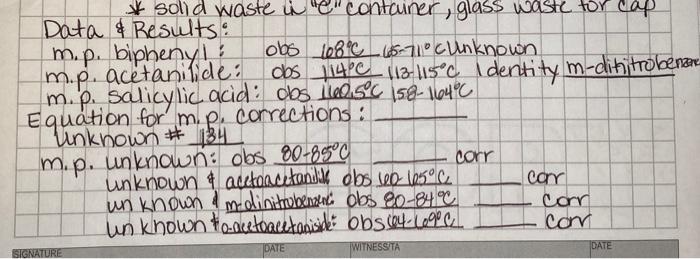 * solid waste in "C" container, glass waste for cap
Data & Results:
m.p. biphenyl: obs 68°C 65-71°C Unknown
m.p. acetanilide: obs 114°C 113-115°C Identity m-dinitrobenzene
m.p. salicylic acid: obs 160.5°C 158-164°C
Equation for m.p. corrections:
Unknown # 134
m.p. unknown: obs 80-85°C corr
unknown & acetoacetanilide obs 65°C corr
unknown & m-dinitrobenzene obs 80-84°C corr
unknown + o-acetoacetanisid: obs corr
SIGNATURE DATE WITNESS/TA DATE